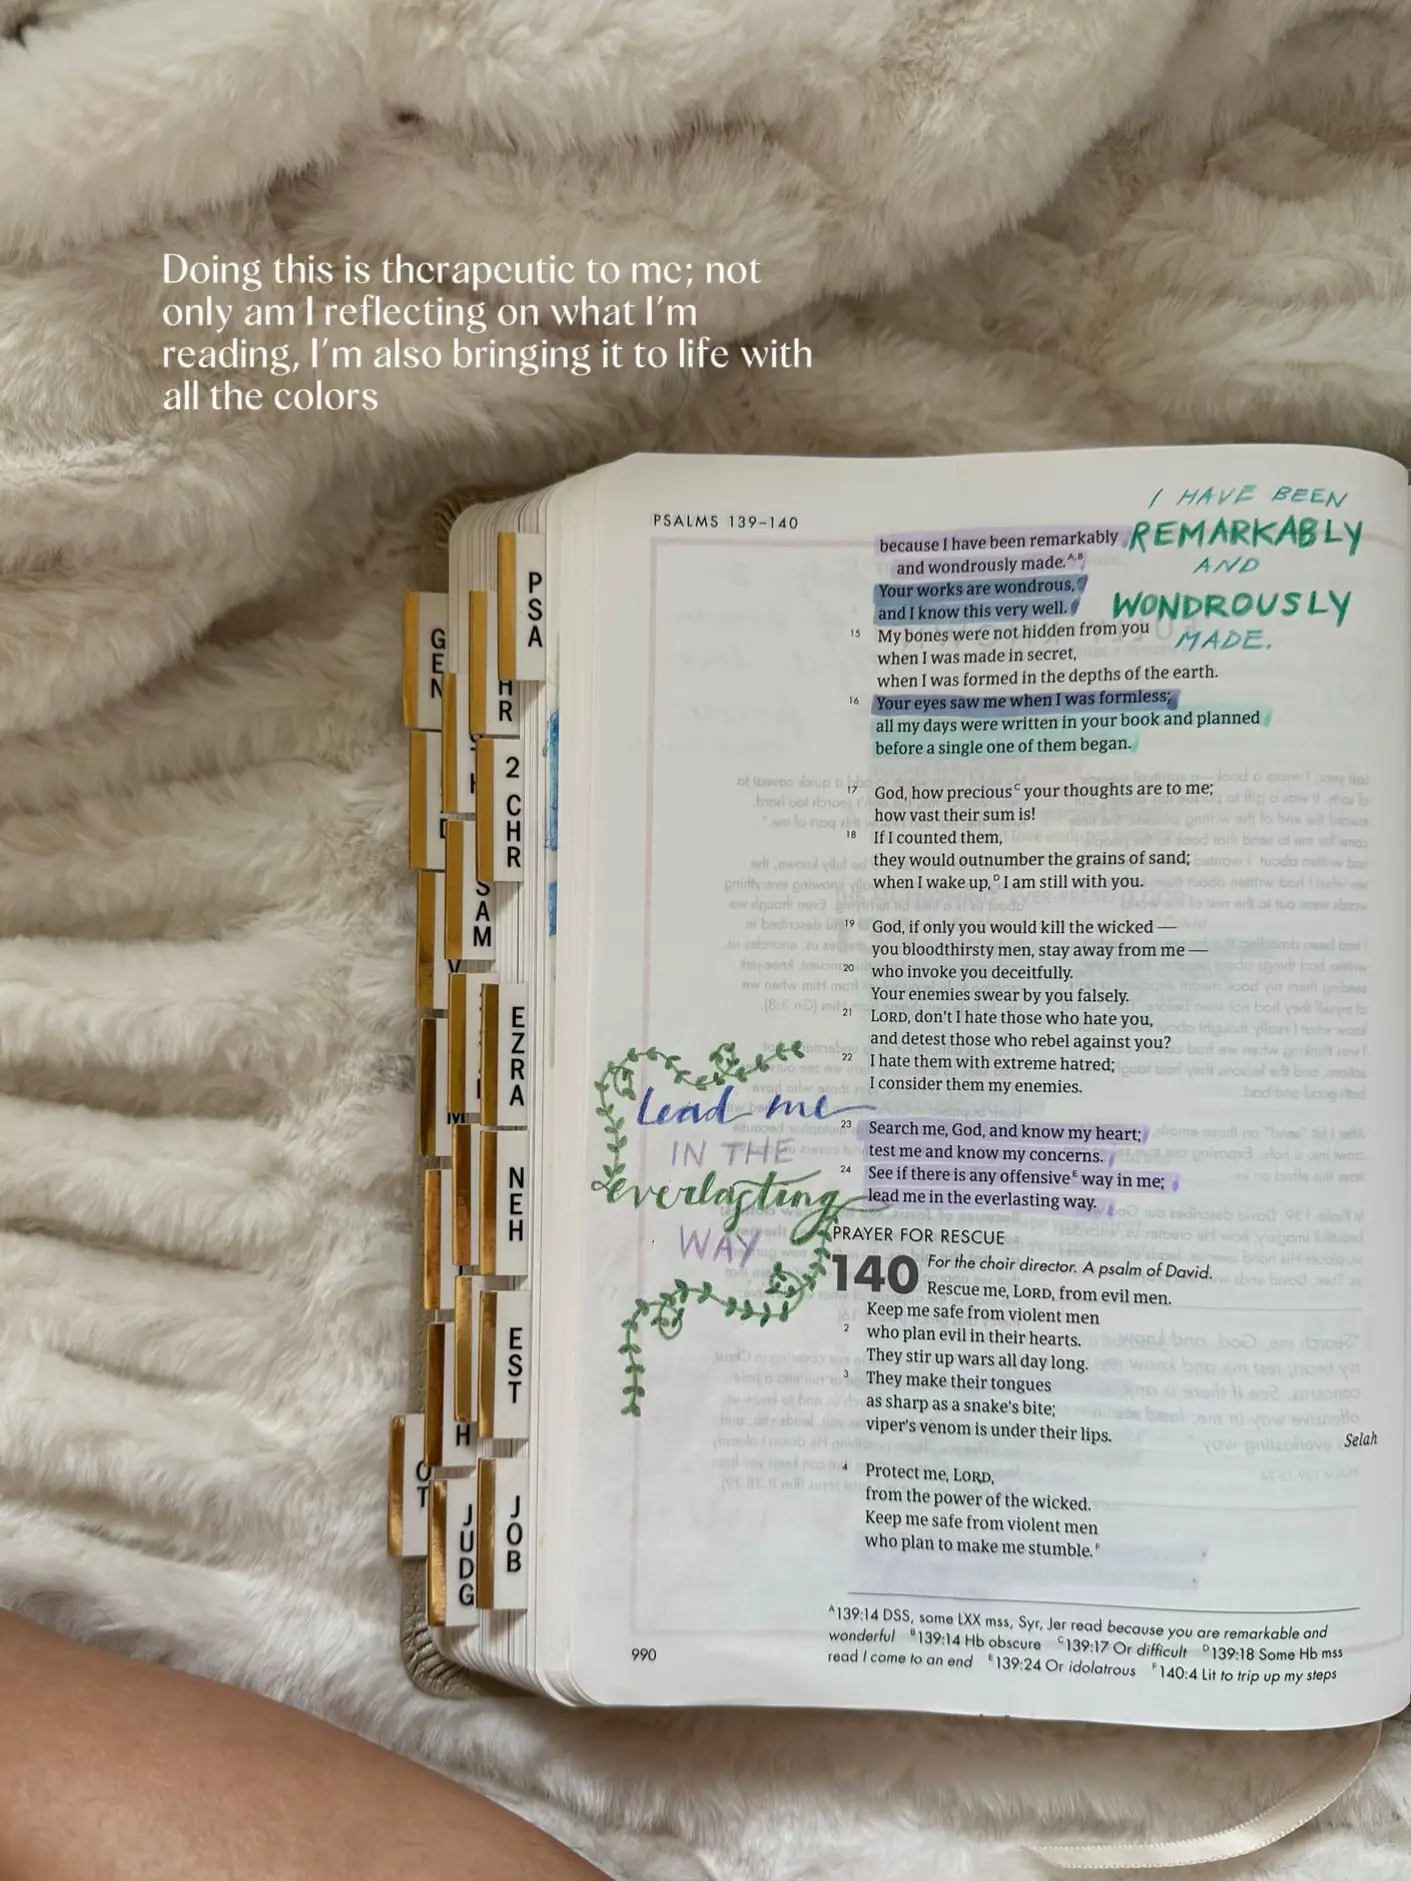 Doing this is therapeutic to me; not
only am I reflecting on what I'm
reading, I'm also bringing it to life with
all the colors
PSALMS 139–140
I HAVE BEEN
REMARKABLY
AND
WONDROUSLY
MADE.
because I have been remarkably
and wondrously made.A,B
Your works are wondrous,
and I know this very well.
15 My bones were not hidden from you
when I was made in secret,
when I was formed in the depths of the earth.
16 Your eyes saw me when I was formless;
all my days were written in your book and planned
before a single one of them began.
17 God, how preciousC your thoughts are to me;
how vast their sum is!
18 If I counted them,
they would outnumber the grains of sand;
when I wake up,D I am still with you.
19 God, if only you would kill the wicked —
you bloodthirsty men, stay away from me —
20 who invoke you deceitfully.
Your enemies swear by you falsely.
21 LORD, don't I hate those who hate you,
and detest those who rebel against you?
22 I hate them with extreme hatred;
I consider them my enemies.
23 Search me, God, and know my heart;
test me and know my concerns.
24 See if there is any offensiveE way in me;
lead me in the everlasting way.
lead me
IN THE
everlasting
WAY
PRAYER FOR RESCUE
140 For the choir director. A psalm of David.
Rescue me, LORD, from evil men.
Keep me safe from violent men
2 who plan evil in their hearts.
They stir up wars all day long.
3 They make their tongues
as sharp as a snake's bite;
viper's venom is under their lips.
Selah
4 Protect me, LORD,
from the power of the wicked.
Keep me safe from violent men
who plan to make me stumble.F
A139:14 DSS, some LXX mss, Syr, Jer read because you are remarkable and
wonderful B139:14 Hb obscure C139:17 Or difficult D139:18 Some Hb mss
read I come to an end E139:24 Or idolatrous F140:4 Lit to trip up my steps
990
PSA
GEN
HR
2 CHR
SAM
EZRA
NEH
EST
JOB
OT
JUDG